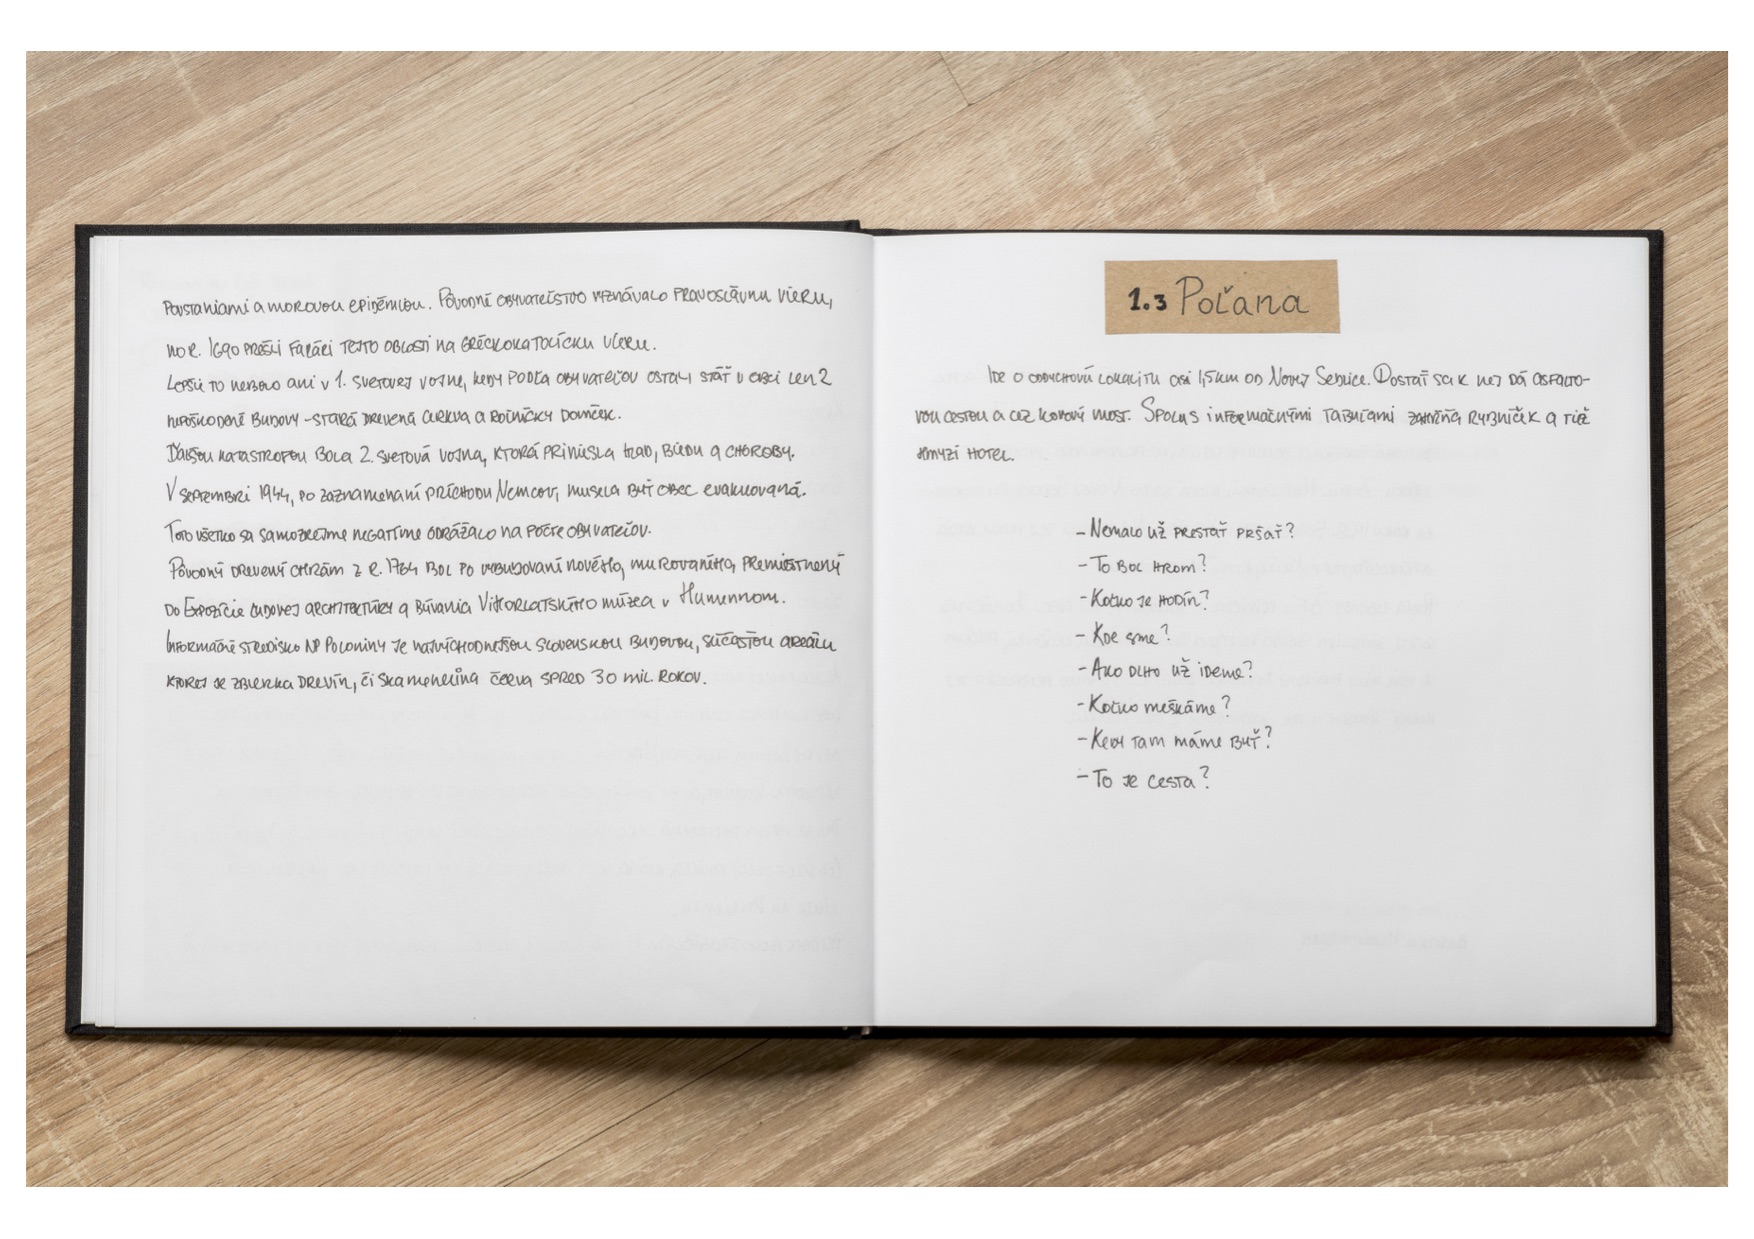 povstaniami a morovou epidémiou. Pôvodné obyvateľstvo vyznávalo pravoslávnu vieru,
no r. 1690 prešli farári tejto oblasti na gréckokatolícku vieru.
Lepšie to nebolo ani v 1. svetovej vojne, kedy podľa obyvateľov ostali stáť v obci len 2
nepoškodené budovy - stará drevená cirkva a roľnícky domček.
Ďalšou katastrofou bola 2. svetová vojna, ktorá priniesla hlad, biedu a choroby.
V septembri 1944, po zaznamenaní príchodu Nemcov, musela byť obec evakuovaná.
Toto všetko sa samozrejme negatívne odrážalo na počte obyvateľov.
Pôvodný drevený chrám z r. 1764 bol po vybudovaní nového, murovaného, premiestnený
do Expozície ľudovej architektúry a bývania Vihorlatského múzea v Humennom.
Informačné stredisko NP Poloniny je najvýchodnejšou slovenskou budovou, súčasťou areálu
ktorej je zbierka drevín, či skamenelina červa spred 30 mil. rokov.
1.3 Poľana
Ide o oddychovú lokalitu asi 1,5km od Novej Sedlice. Dostať sa k nej dá asfalto-
vou cestou a cez kovový most. Spolu s informačnými tabuľami zahŕňa rybníček a tiež
hmyzí hotel.
- Nemalo už prestať pršať?
- To bol hrom?
- Koľko je hodín?
- Kde sme?
- Ako dlho už ideme?
- Koľko meškáme?
- Kedy tam máme byť?
- To je cesta?